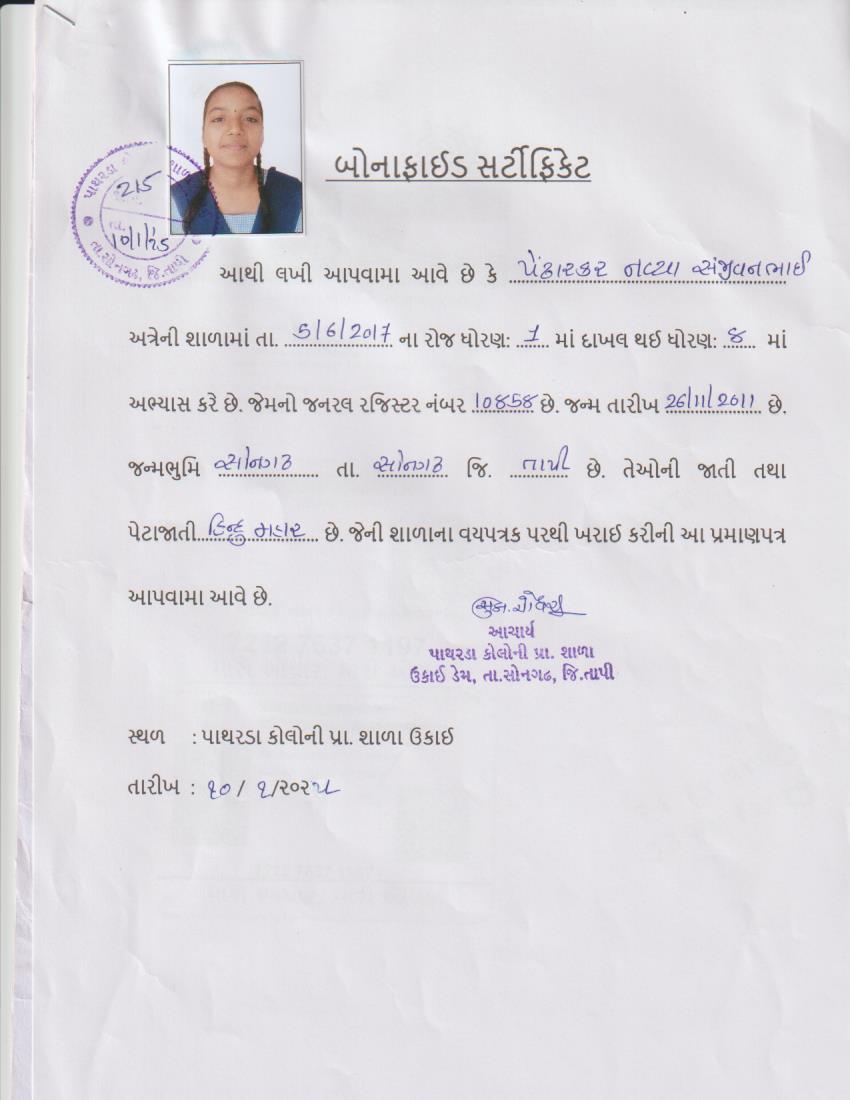 બોનાફાઈડ સર્ટીફિકેટ
પાથરડા કો શાળ
215
તા.
10/1/25
તા.સોનગઢ, જિ.તાપી
આથી લખી આપવામા આવે છે કે પેંઢારકર નવ્યા સંજીવનભાઈ
અત્રેની શાળામાં તા. 5/6/2017 ના રોજ ધોરણ: 1 માં દાખલ થઈ ધોરણ: ૪ માં
અભ્યાસ કરે છે. જેમનો જનરલ રજિસ્ટર નંબર છે. જન્મ તારીખ 26/11/2011 છે.
જન્મભુમિ સોનગઢ તા. સોનગઢ જિ. તાપી છે. તેઓની જાતી તથા
પેટાજાતી હિન્દુ મહાર છે. જેની શાળાના વયપત્રક પરથી ખરાઈ કરીની આ પ્રમાણપત્ર
આપવામા આવે છે.
આચાર્ય
પાથરડા કોલોની પ્રા. શાળા
ઉકાઈ ડેમ, તા.સોનગઢ, જિ.તાપી
સ્થળ : પાથરડા કોલોની પ્રા. શાળા ઉકાઈ
તારીખ : ૧૦ / ૧/૨૦૨૫